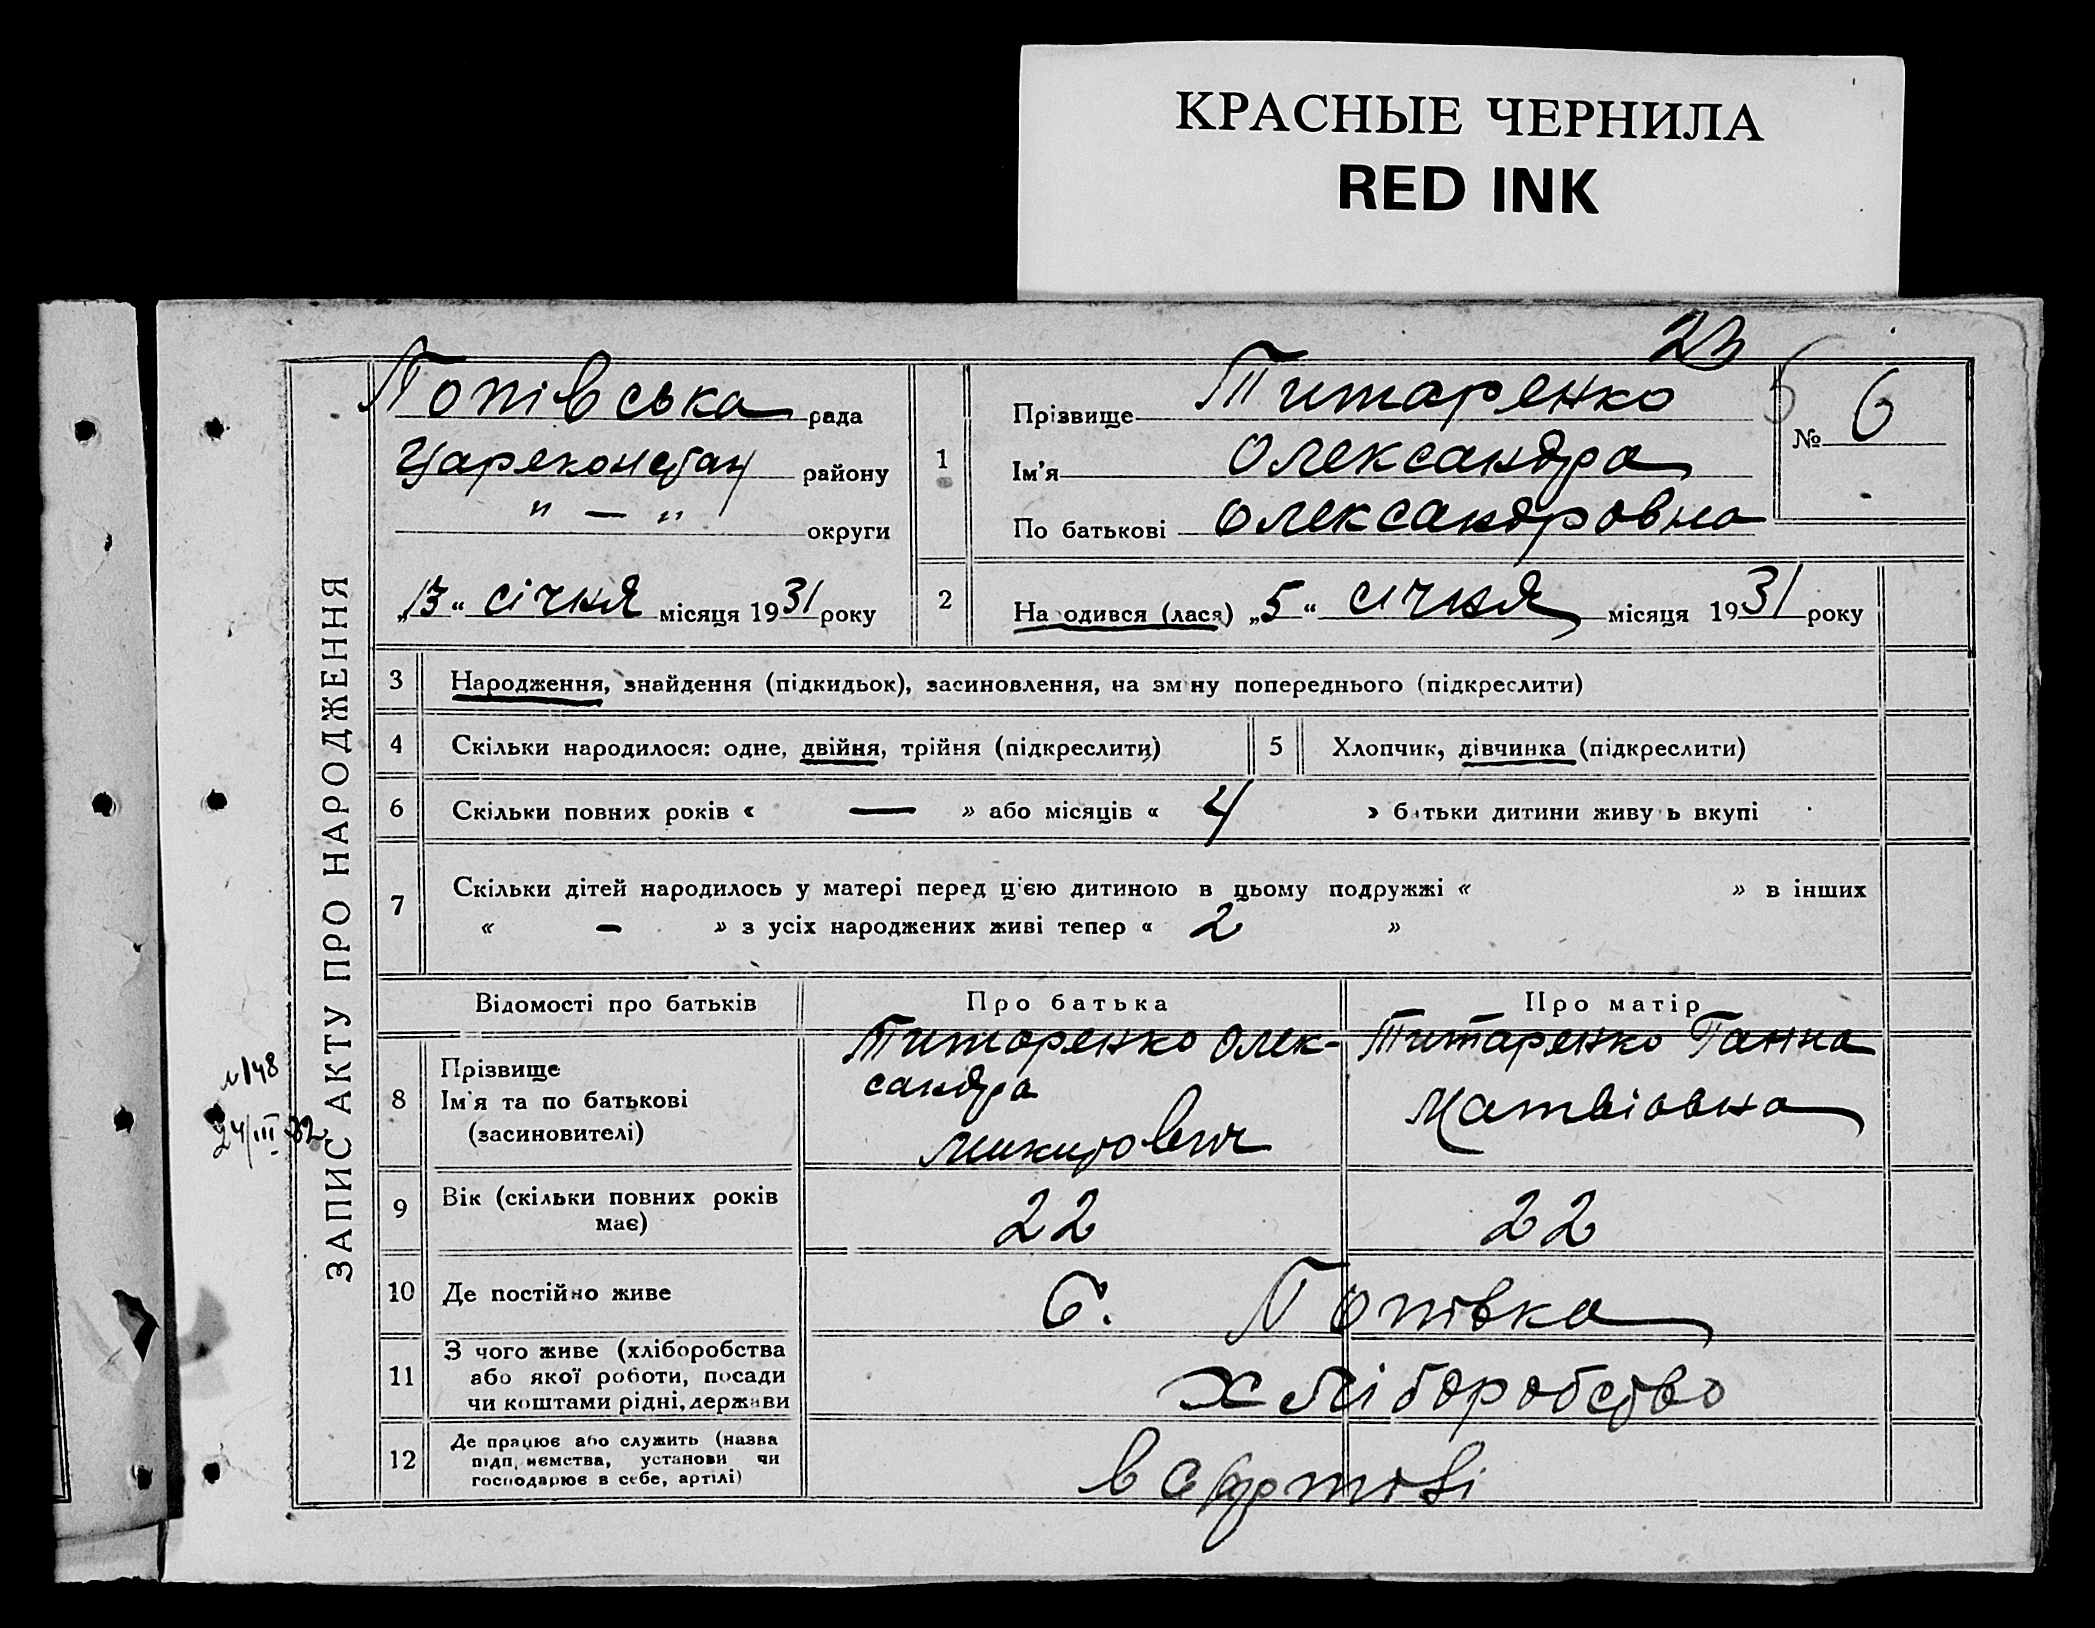 КРАСНЫЕ ЧЕРНИЛА
RED INK
23
ЗАПИС АКТУ ПРО НАРОДЖЕННЯ
Попівська рада
Цареконстан району
" — " округи
„13“ січня місяця 1931 року
1
Прізвище Титаренко
Ім'я Олександра
По батькові Олександровна
№ 6
5
2
На одився (лася) „5“ січня місяця 1931 року
3 Народження, знайдення (підкидьок), засиновлення, на зм ну попереднього (підкреслити)
4 Скільки народилося: одне, двійня, трійня (підкреслити)
5 Хлопчик, дівчинка (підкреслити)
6 Скільки повних років « — » або місяців « 4 » б тьки дитини живу ь вкупі
7 Скільки дітей народилось у матері перед ц'єю дитиною в цьому подружжі « » в інших
« - » з усіх народжених живі тепер « 2 »
Відомості про батьків
Про батька
Про матір
8 Прізвище
Ім'я та по батькові
(засиновителі)
Титаренко Олек-
сандра
Микитович
Титаренко Ганна
Матвіовна
№148
24/III 32
9 Вік (скільки повних років
має)
22
22
10 Де постійно живе
С. Попівка
11 З чого живе (хліборобства
або якої роботи, посади
чи коштами рідні, держави
хліборобство
12 Де працює або служить (назва
підп, иємства, установи чи
господарює в себе, артілі)
в